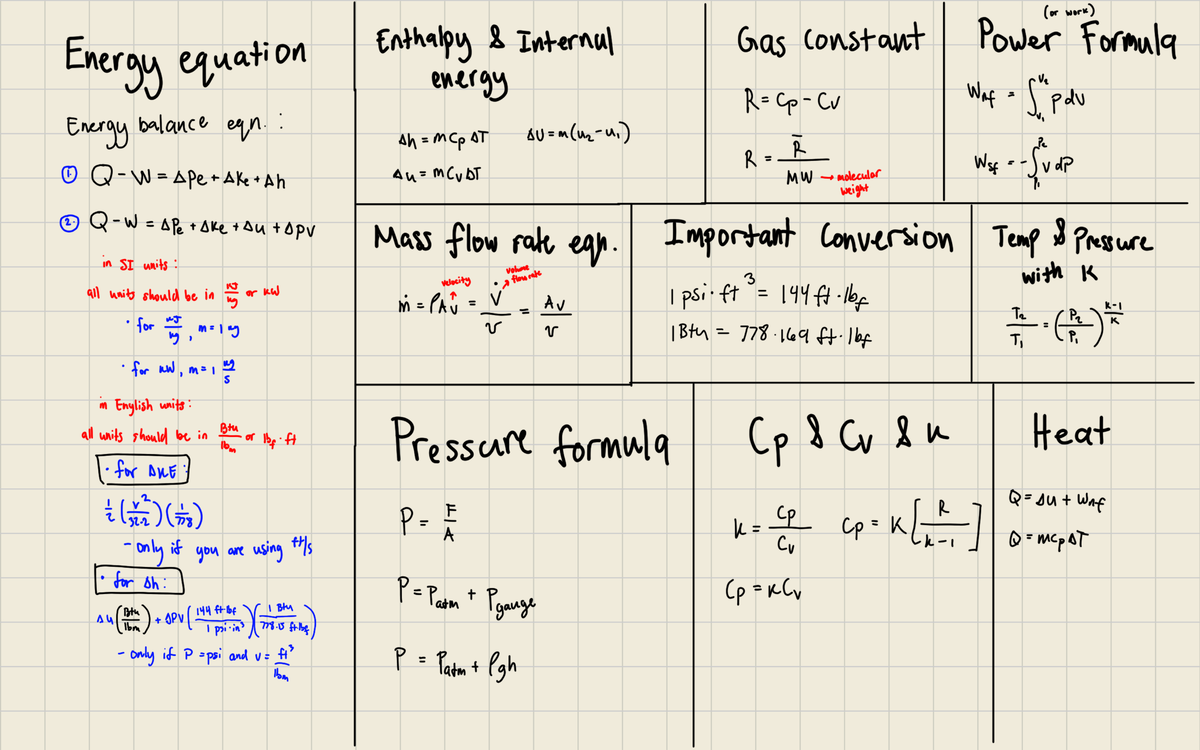 Energy equation
Energy balance eqn. :
1. Q - W = ΔPe + ΔKe + Δh
2. Q - W = ΔPe + ΔKe + Δu + ΔPV
in SI units :
all units should be in kJ/kg or kW
• for kJ/kg , m = 1 kg
• for kW , m = 1 kg/s
in English units :
all units should be in Btu/lbm or lbf · ft
• for ΔKE :
1/2 (v²/32.2)(1/778)
- only if you are using ft/s
• for Δh :
Δu (Btu/lbm) + ΔPV (144 ft·lbf / 1 psi·in³)(1 Btu / 778.15 ft·lbf)
- only if P = psi and v = ft³/lbm
Enthalpy & Internal
energy
Δh = m Cp ΔT    ΔU = m(u₂ - u₁)
Δu = m Cv ΔT
Gas constant
R = Cp - Cv
R = R̄ / MW → molecular
weight
(or work)
Power Formula
Wnf = ∫ᵥ₁ⱽ² p dv
Wsf = - ∫ₚ₁ᴾ² v dP
Mass flow rate eqn.
velocity
volume
flow rate
ṁ = ρAv = V̇/v = Av/v
Important Conversion
1 psi · ft³ = 144 ft · lbf
1 Btu = 778.169 ft · lbf
Temp & Pressure
with K
T₂/T₁ = (P₂/P₁)^(k-1/k)
Pressure formula
P = F/A
P = Patm + Pgauge
P = Patm + ρgh
Cp & Cv & k
k = Cp/Cv    Cp = K[R/k-1]
Cp = kCv
Heat
Q = Δu + Wnf
Q = mCpΔT